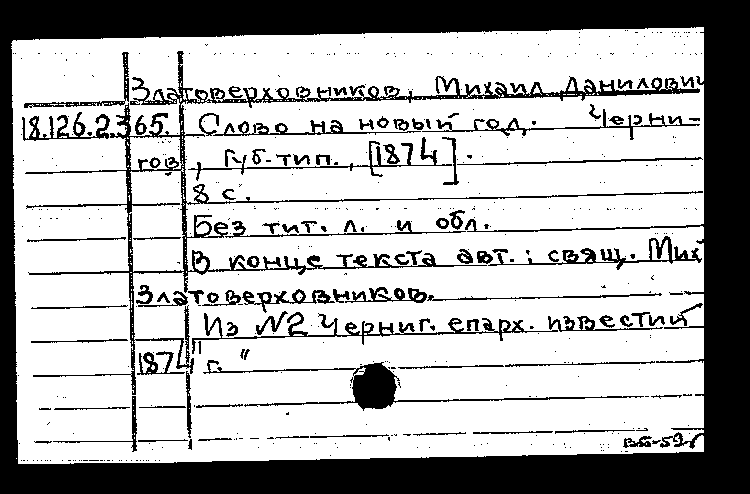 Златоверховников, Михаил Данилович
18.126.2.365. Слово на новый год. Черни-
гов, Губ. тип., [1874].
8 с.
Без тит. л. и обл.
В конце текста авт.: свящ. Мих
Златоверховников.
Из №2 Черниг. епарх. известий
1874 г."